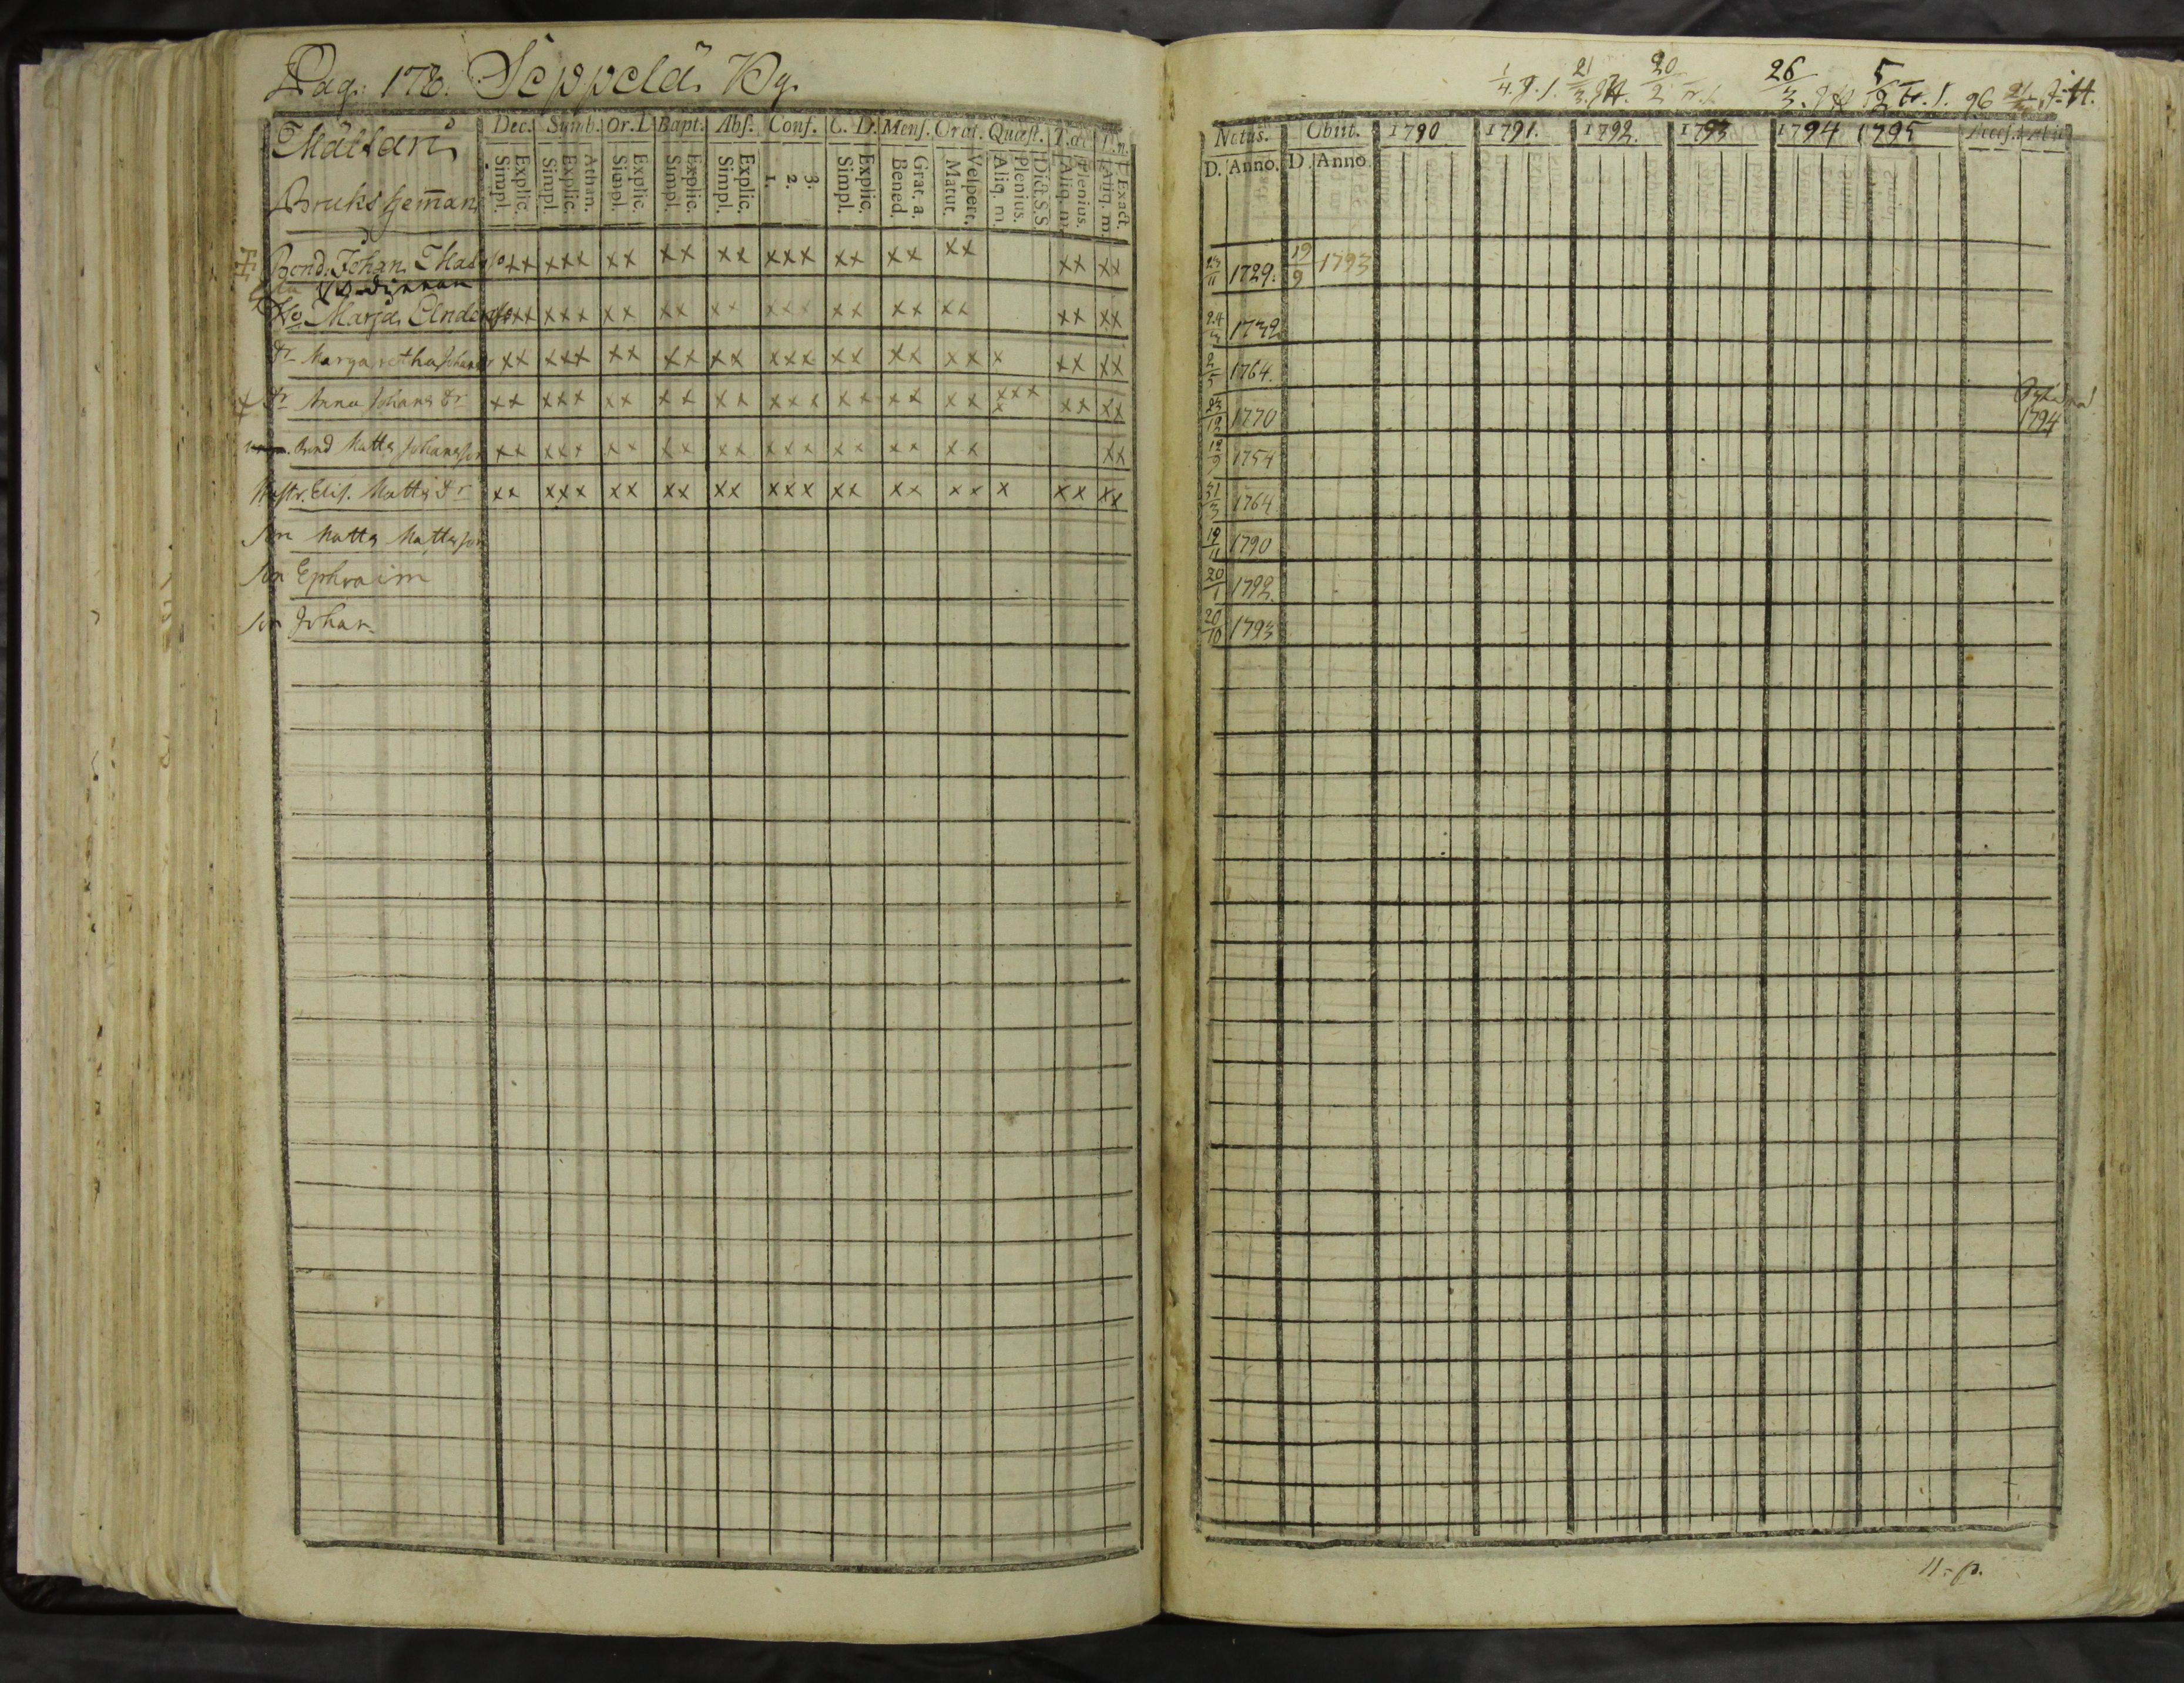 Pag: 178. Seppelä By.
Mattari
Dec. Symb. Or. D Bapt. Abs. Conf. C. D. Mens. Orat. Quæst.
Explic. Simpl. Athan. Explic. Simpl. Explic. Simpl. Explic. Simpl. Explic. Simpl. 3. 2. 1. Explic. Simpl. Grat. a. Bened. Vespert. Matut. Dict. S.S. Plenius. Aliq. m. Plenius. Aliq. m. Exact. Aliq. m.
Bruks hemman
Bond. Johan xx xxx xx xx xx xxx xx xx xx xx xx
Marja xx xxx xx xx xx xxx xx xx xx xx xx
dr Margaretha Johans xx xxx xx xx xx xxx xx xx xx x xx xx
dr Anna Johans dr xx xxx xx xx xx xxx xx xx xx xxx x xx xx
Bond Matts Johansson xx xxx xx xx xx xxx xx xx xx xx
Hustr. Elis. Matts dr xx xxx xx xx xx xxx xx xx xx x xx xx
Son Matts Mattsson
Son Ephraim
Son Johan
1/4 21/3 20/2 26/3 5/2 96 21/3
Natus. Obiit. 1790 1791. 1792. 1793 1794 1795
D. Anno. D. Anno.
23/11 1729. 19/9 1793
24/3 1732
2/5 1764.
23/12 1770 1794
12/9 1754
31/3 1764
19/11 1790
20/1 1792.
20/10 1793